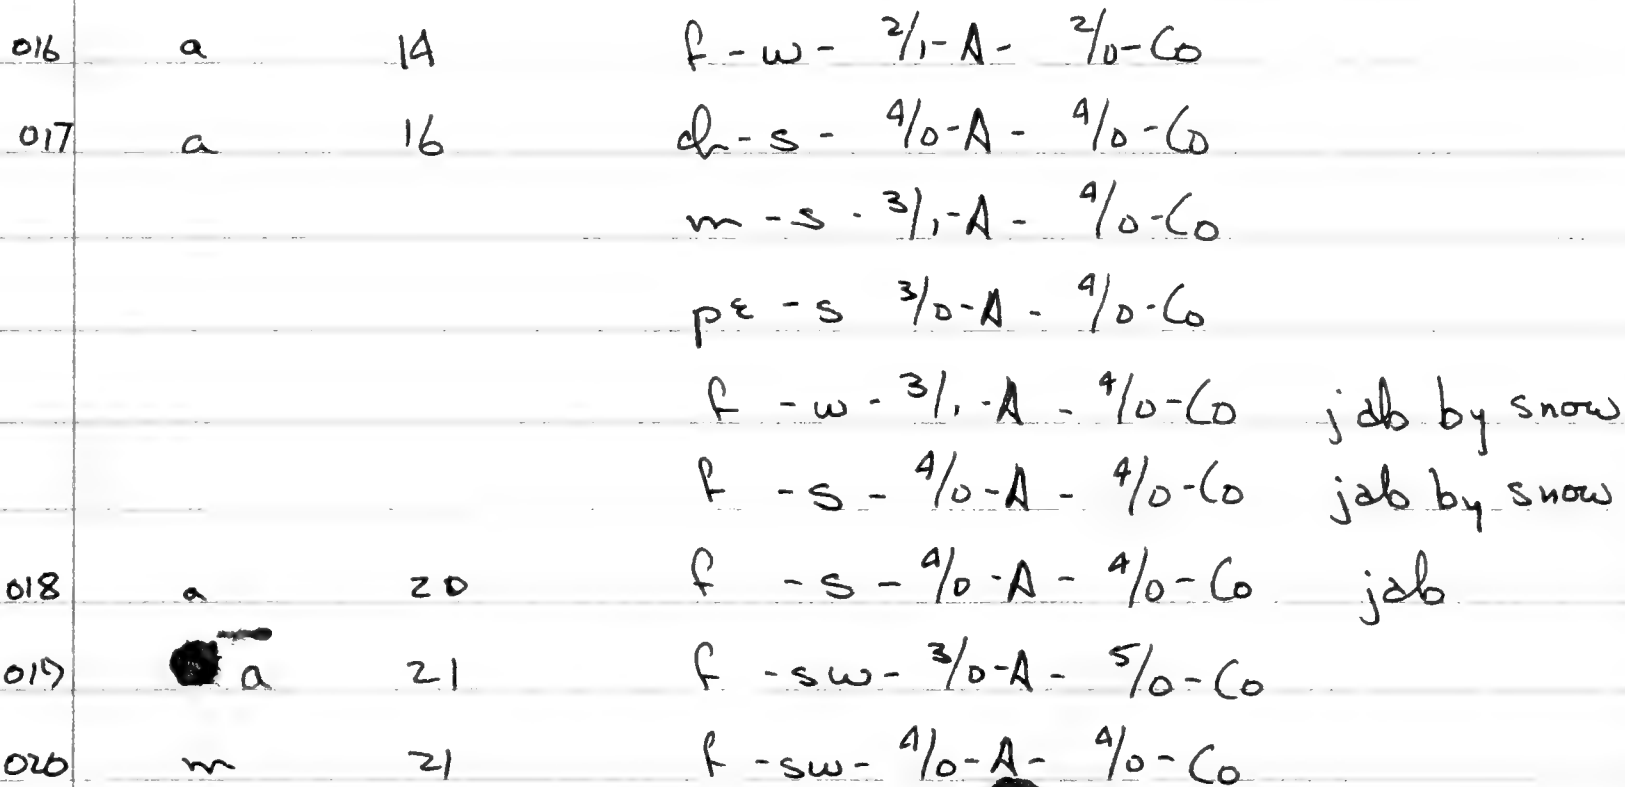 016 a 14 f - w - 2/1 - A - 2/0 - Co
017 a 16 ch - s - 4/0 - A - 4/0 - Co
m - s - 3/1 - A - 4/0 - Co
pε - s 3/0 - A - 4/0 - Co
f - w - 3/1 - A - 4/0 - Co jab by snow
f - s - 4/0 - A - 4/0 - Co jab by snow
018 a 20 f - s - 4/0 - A - 4/0 - Co jab
019 a 21 f - sw - 3/0 - A - 5/0 - Co
020 m 21 f - sw - 4/0 - A - 4/0 - Co